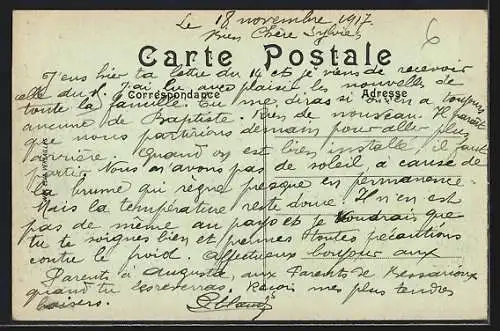 Le 18 novembre 1917
Bien Chère Sylvie
6
Carte Postale
J'eus hier ta lettre du 14 et je viens de recevoir
celle du J'ai lu avec plaisir les nouvelles de
Correspondance Adresse
toute la famille. Tu me diras si on en a toujours
aucune de Baptiste. Rien de nouveau. Il paraît
que nous partirions demain pour aller plus
arrière. Quand on est bien installé, il faut
partir. Nous n'avons pas de soleil à cause de
la brume qui règne presque en permanence.
Mais la température reste douce. Il n'en est
pas de même au pays et je voudrais que
tu te soignes bien et prennes toutes précautions
contre le froid. Affectueux bonjour aux
Parents à Augusta, aux Parents de
quand tu les reverras. Reçois mes plus tendres
baisers.